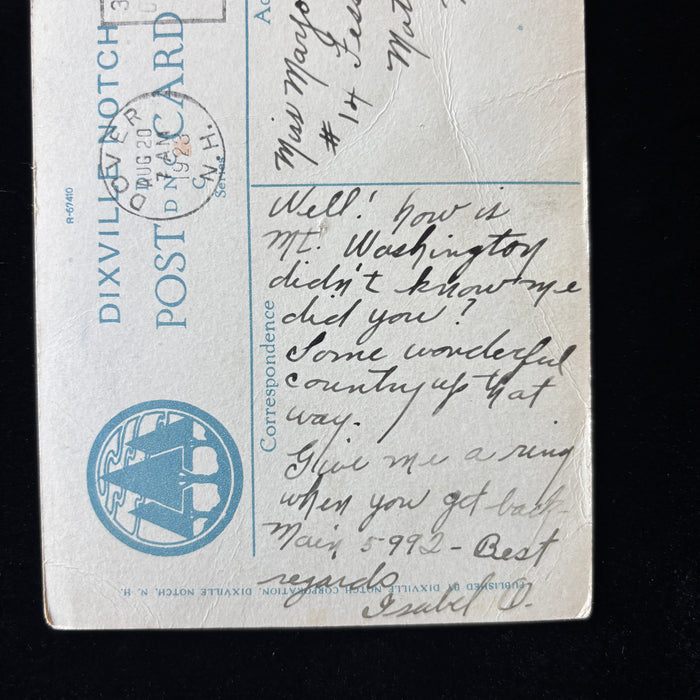 DIXVILLE NOTCH
POST CARD
DNC
Series
R-67410
DOVER
AUG 20
7 AM
1923
N.H.
Miss
# 14
Correspondence
Well! how is
Mt. Washington
didn't know me
did you?
Some wonderful
country up that
way.
Give me a ring
when you get back-
Main 5992 - Best
regards
Isabel D.
PUBLISHED BY DIXVILLE NOTCH CORPORATION, DIXVILLE NOTCH, N. H.